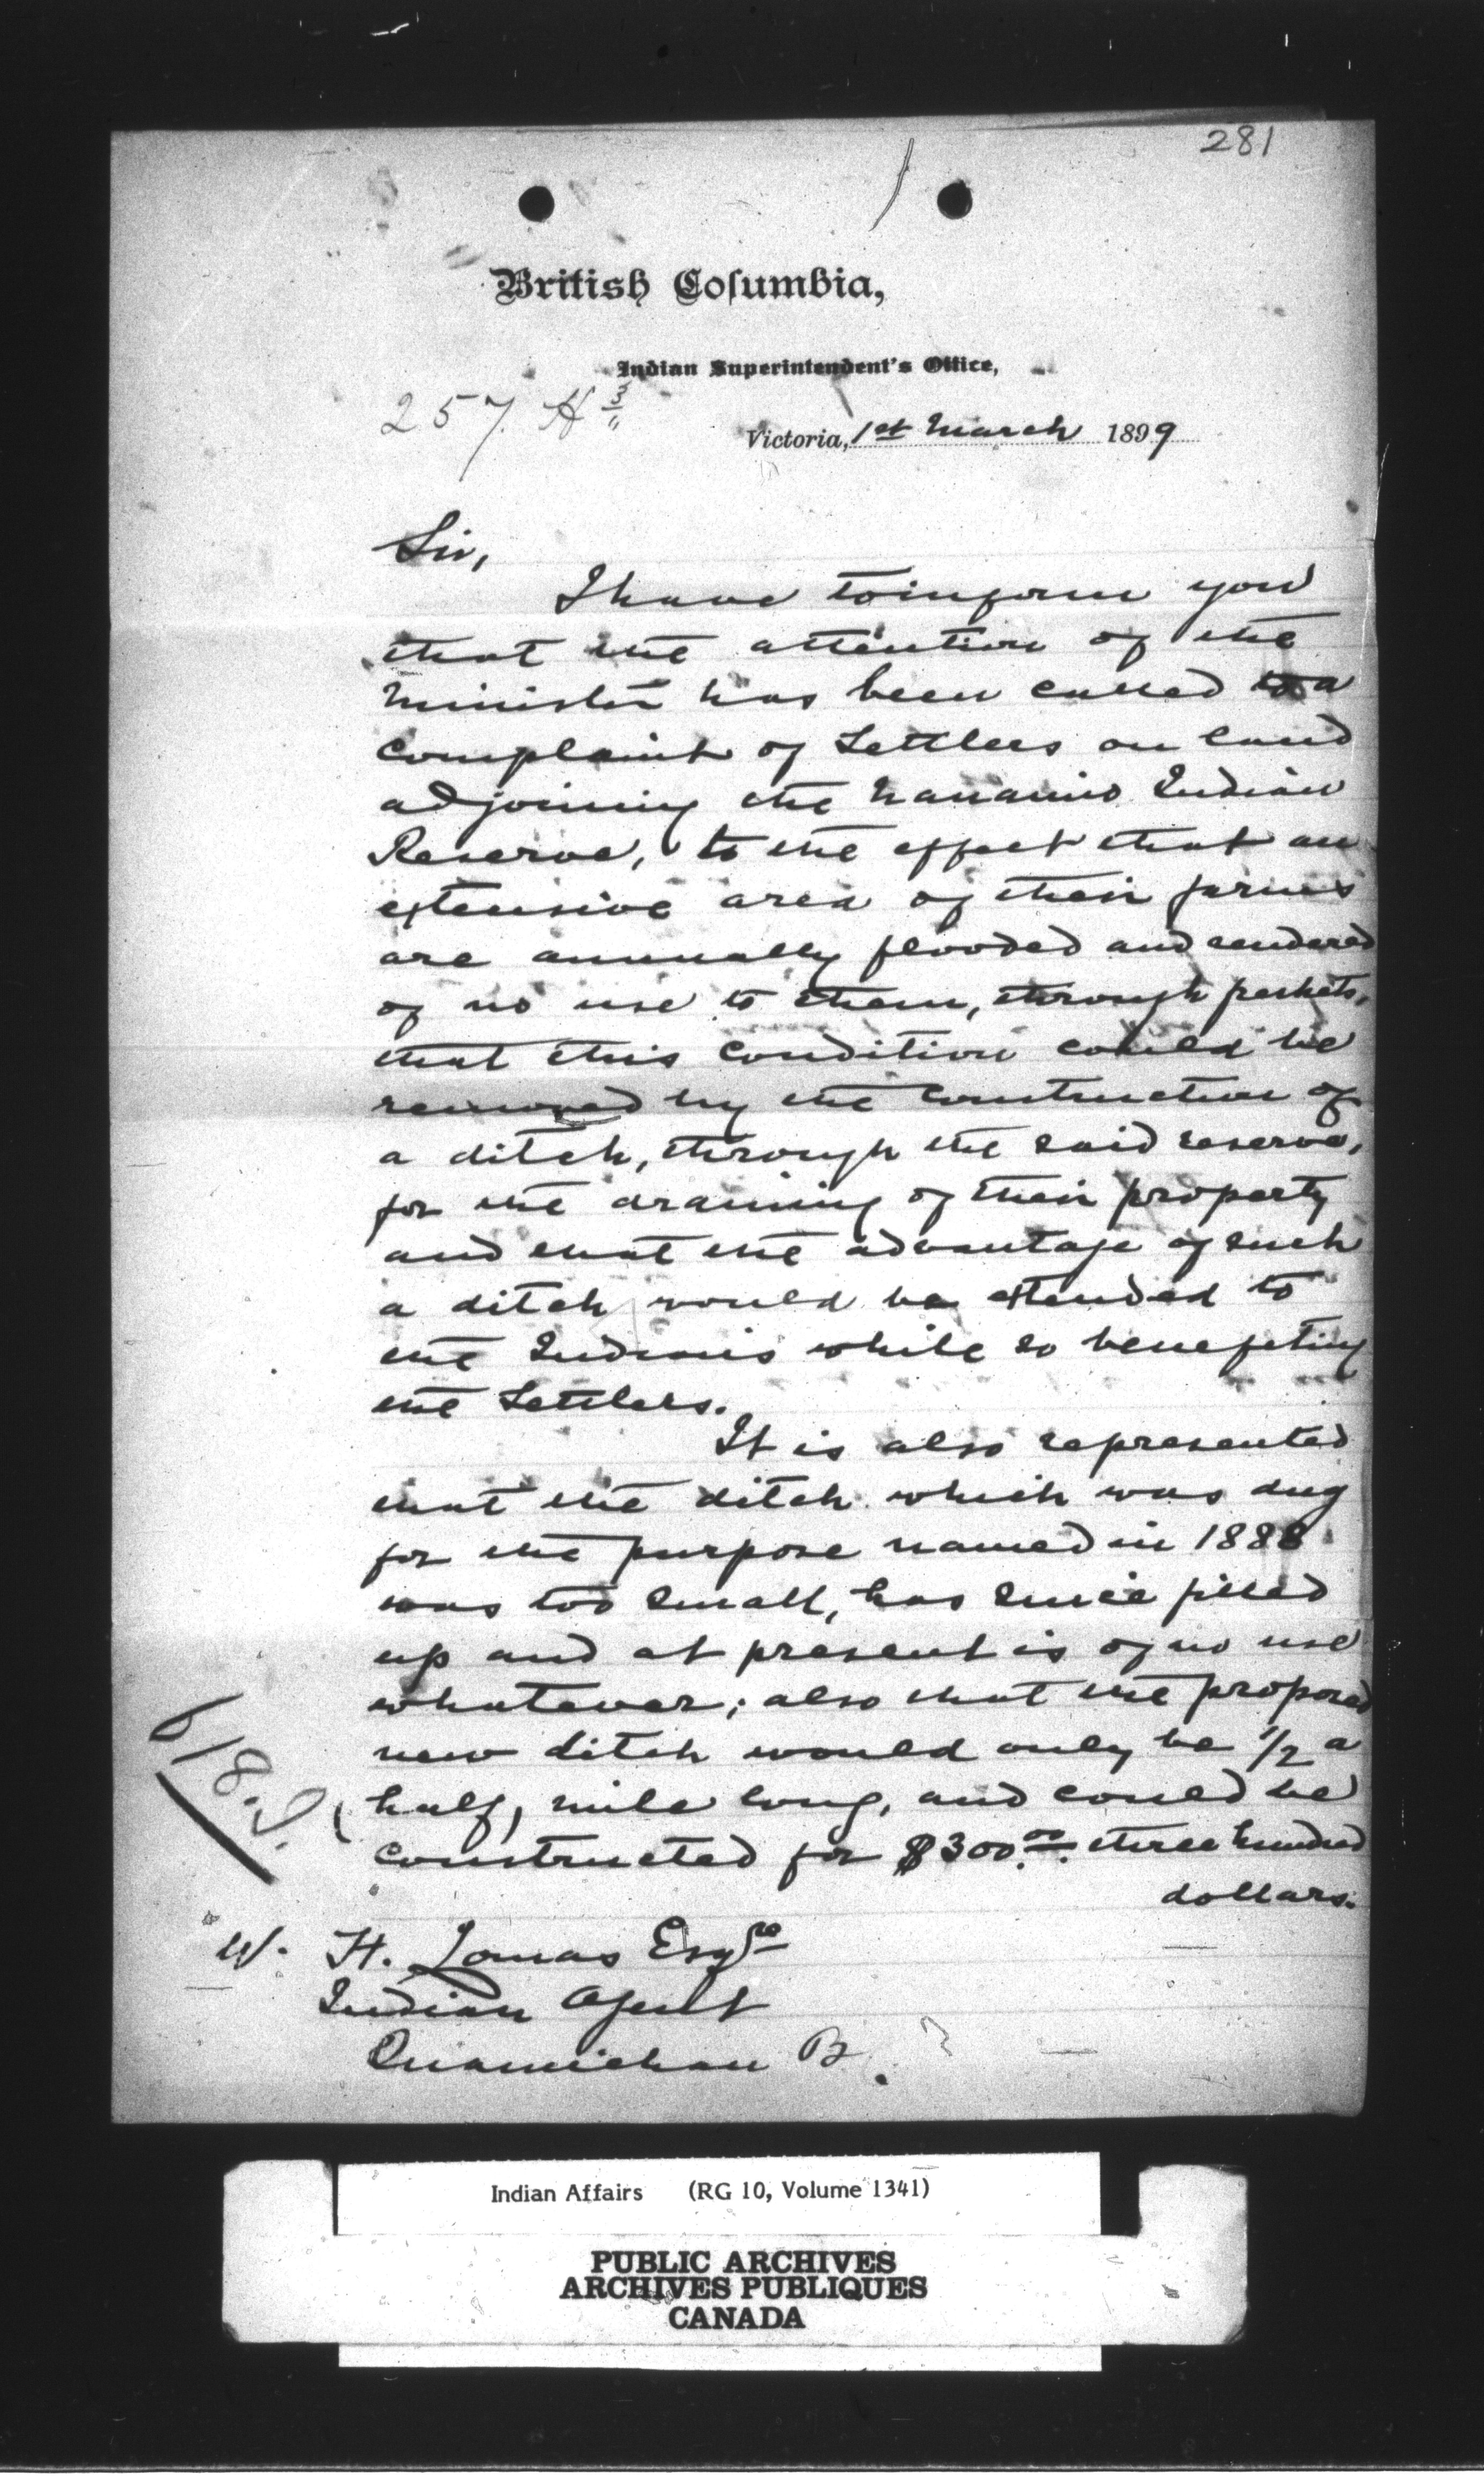 281
British Columbia,
Indian Superintendent's Office,
257. H
Victoria, 1st March 1899
Sir,
I have to inform you
that the attention of the
Minister has been called to a
complaint of Settlers on land
adjoining the Nanaimo Indian
Reserve, to the effect that an
extensive area of their farms
are annually flooded and rendered
of no use to them, through freshets,
that this condition could be
removed by the construction of
a ditch, through the said reserve,
for the draining of their property
and that the advantage of such
a ditch would be extended to
the Indians while so benefiting
the Settlers.
It is also represented
that the ditch which was dug
for the purpose named in 1888
was too small, has since filled
up and at present is of no use
whatever; also that the proposed
new ditch would only be 1/2 a
half, mile long, and could be
constructed for $300.00 three hundred
dollars.
W. H. Lomas Esqre
Indian Agent
Quamichan B
Indian Affairs (RG 10, Volume 1341)
PUBLIC ARCHIVES
ARCHIVES PUBLIQUES
CANADA